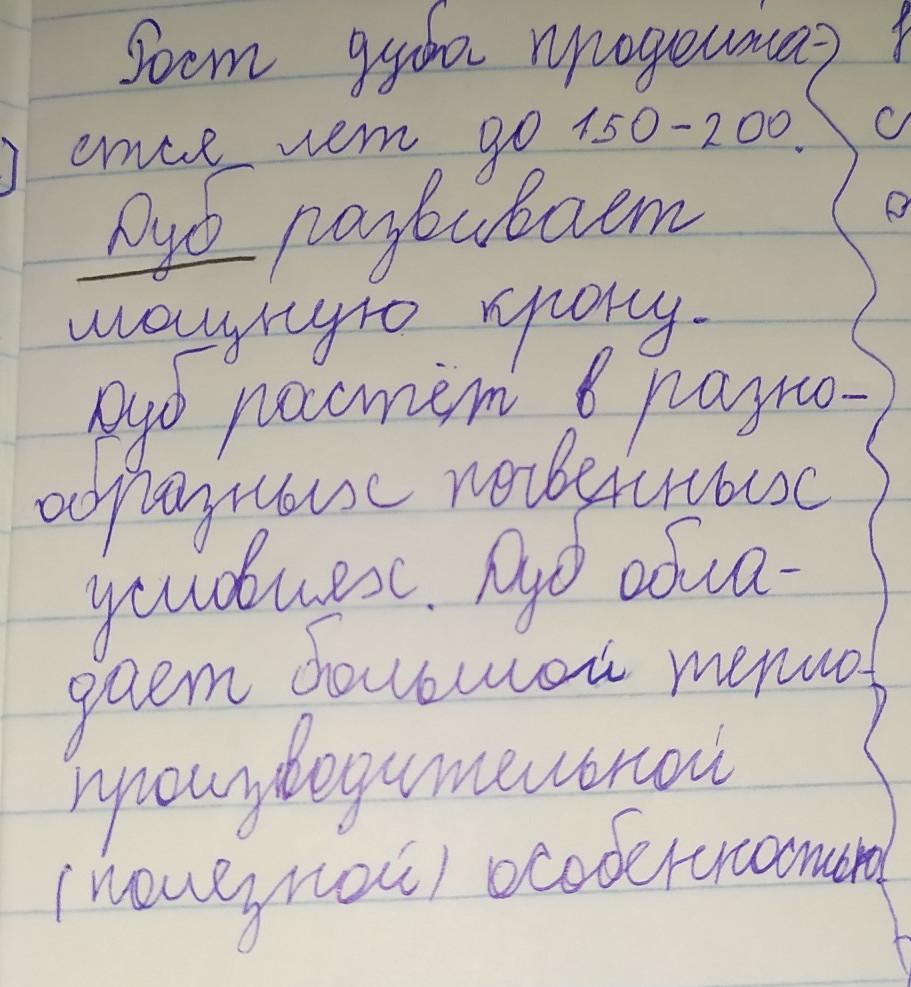 Рост дуба продолжа-
ется лет до 150-200.
Дуб развивает
мощную крону.
Дуб растёт в разно-
образных почвенных
условиях. Дуб обла-
дает большой тепло-
производительной
(полезной) особенностью